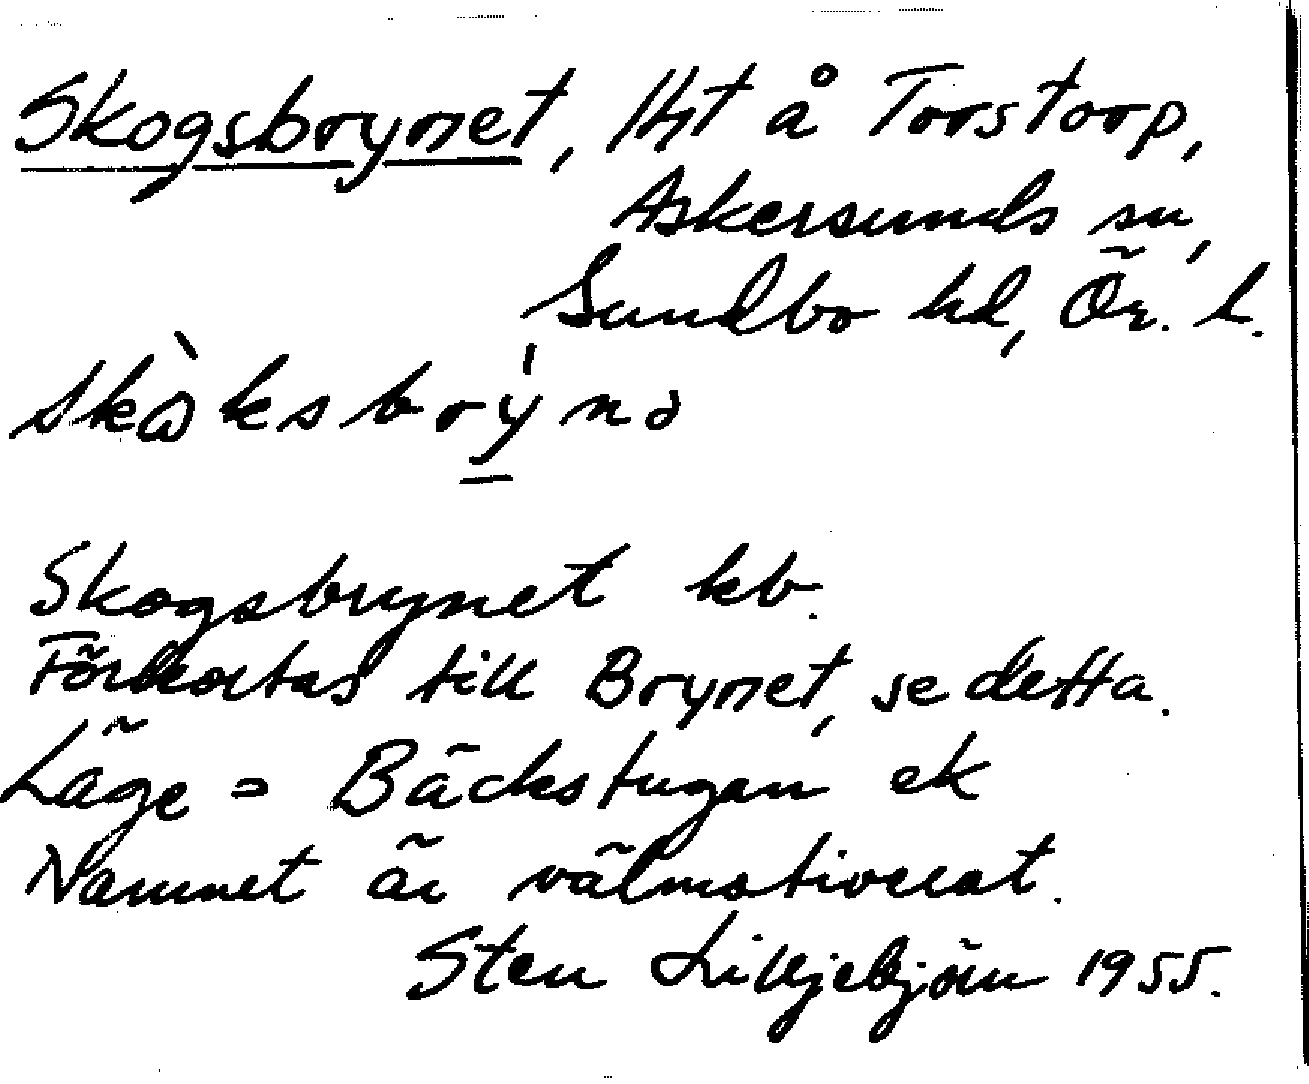 Skogsbrynet, lht å Torstorp,
Askersunds sn,
Sundbo hd, Ör. l.
skòksbrýnə
Skogsbrynet kb.
Förkortas till Brynet, se detta.
Läge = Bäckstugan ek
Namnet är välmotiverat.
Sten Lilljebjörn 1955.